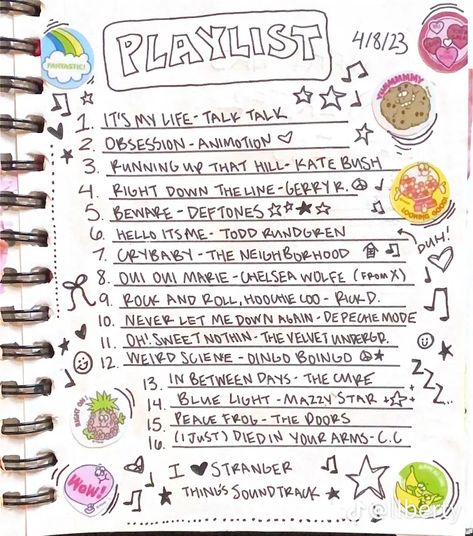 FANTASTIC!
PLAYLIST
4/8/23
YUMMMMMY
1. IT'S MY LIFE - TALK TALK
2. OBSESSION - ANIMOTION
3. RUNNING UP THAT HILL - KATE BUSH
4. RIGHT DOWN THE LINE - GERRY R.
5. BEWARE - DEFTONES
LOOKING GOOD!
6. HELLO ITS ME - TODD RUNDGREN
DUH!
7. CRYBABY - THE NEIGHBORHOOD
8. OUI OUI MARIE - CHELSEA WOLFE (FROM X)
9. ROCK AND ROLL, HOOCHIE COO - RICK D.
10. NEVER LET ME DOWN AGAIN - DEPECHE MODE
11. OH! SWEET NOTHIN - THE VELVET UNDERGD.
12. WEIRD SCIENE - OINGO BOINGO
ZZZ..
13. IN BETWEEN DAYS - THE CURE
14. BLUE LIGHT - MAZZY STAR
RIGHT ON!
15. PEACE FROG - THE DOORS
16. (I JUST) DIED IN YOUR ARMS - C.C
I ♥ STRANGER
THING'S SOUNDTRACK
WOW!